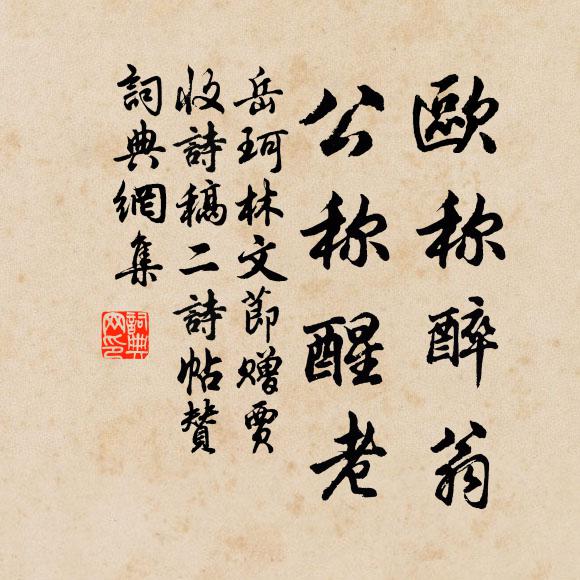 歐称醉翁
公称醒老
岳珂林文節贈賈
收詩稿二詩帖贊
詞典網集
詞典
网印